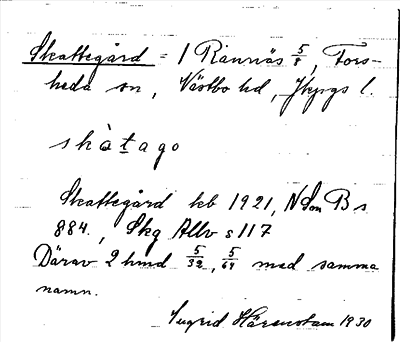 Skattegård = 1 Rannäs 5/8, Fors-
heda sn, Västbo hd, Jkpgs l.
skàtago
Skattegård kb 1921, NSm B s
884, Skg Allv s 117
Därav 2 hmd 5/32, 5/64 med samma
namn.
Ingrid Härenstam 1930